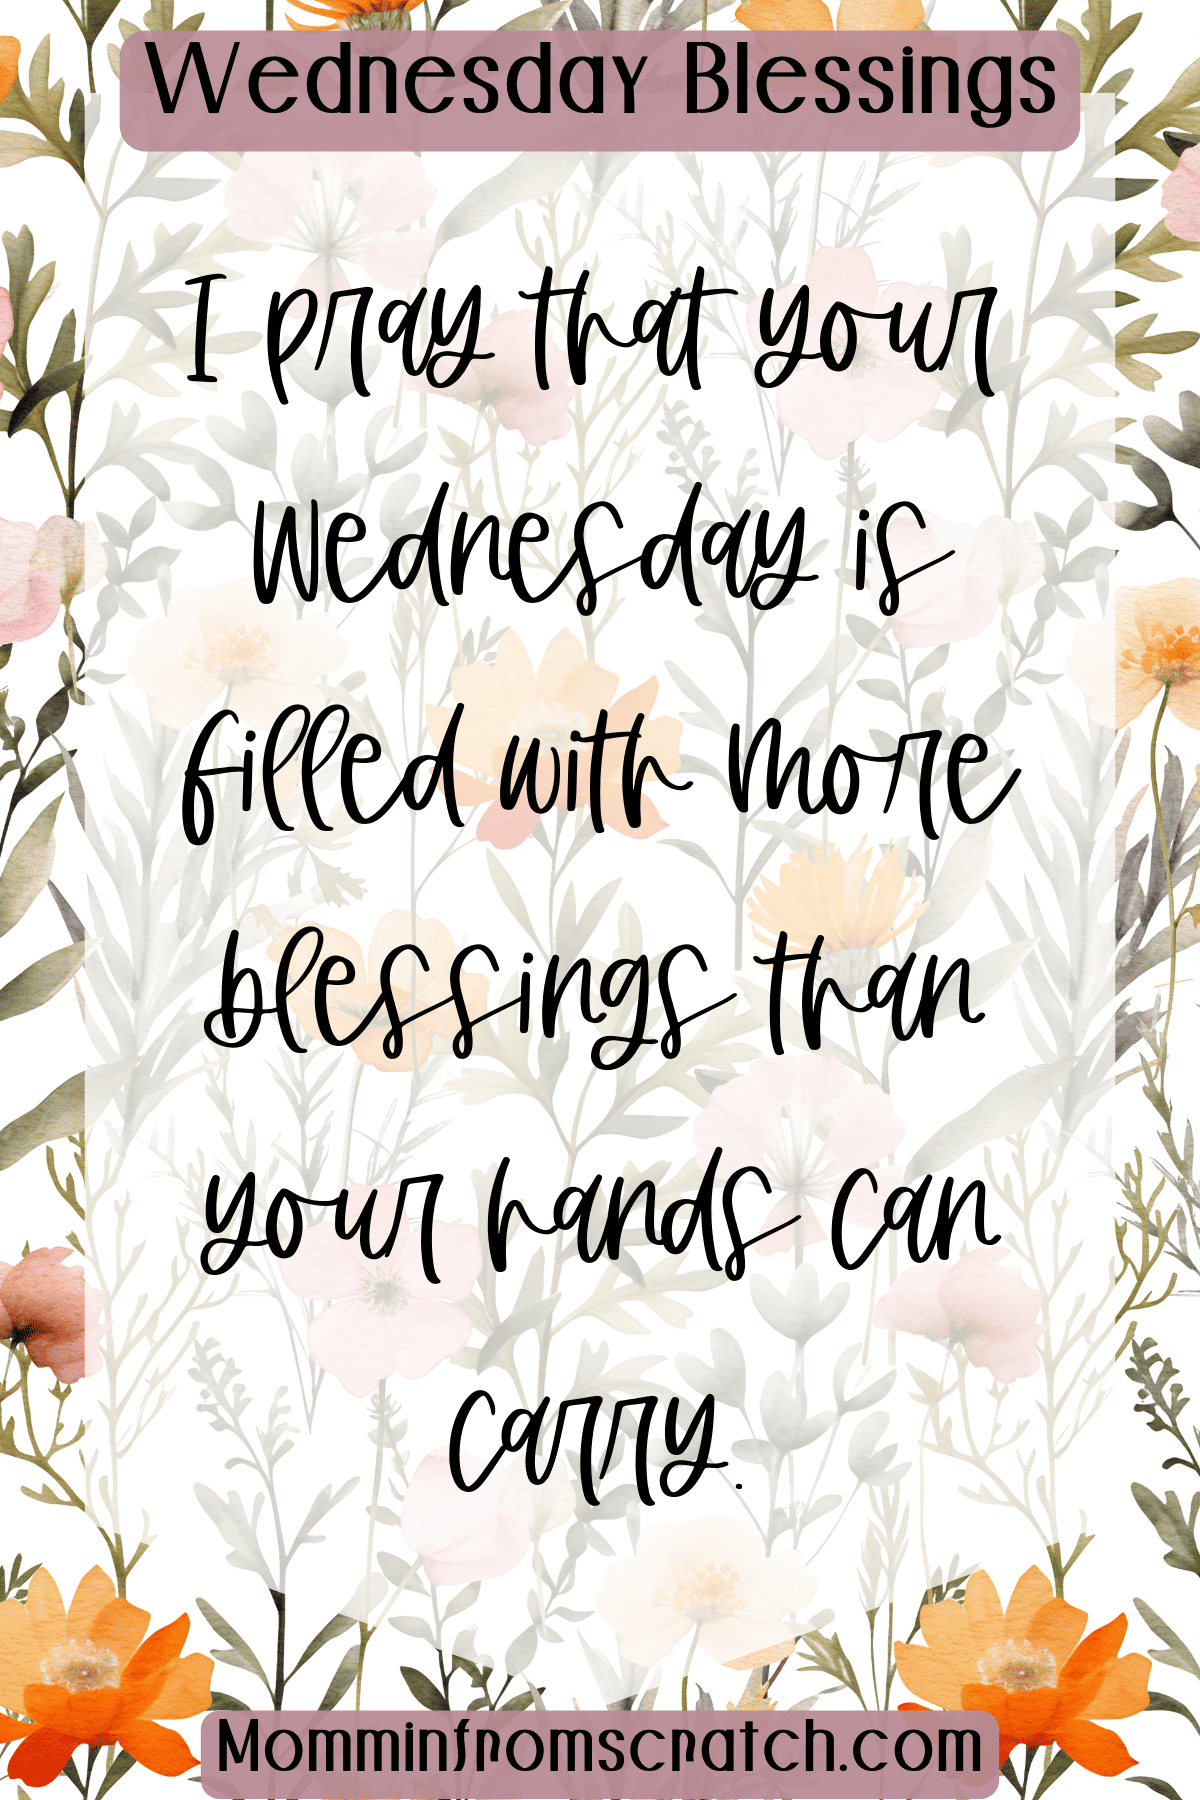 Wednesday Blessings
I pray that your
Wednesday is
filled with more
blessings than
your hands can
carry.
Momminfromscratch.com